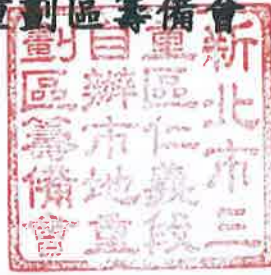 劃區籌備會
新北市三
重區仁義段
自辦市地重
劃區籌備會